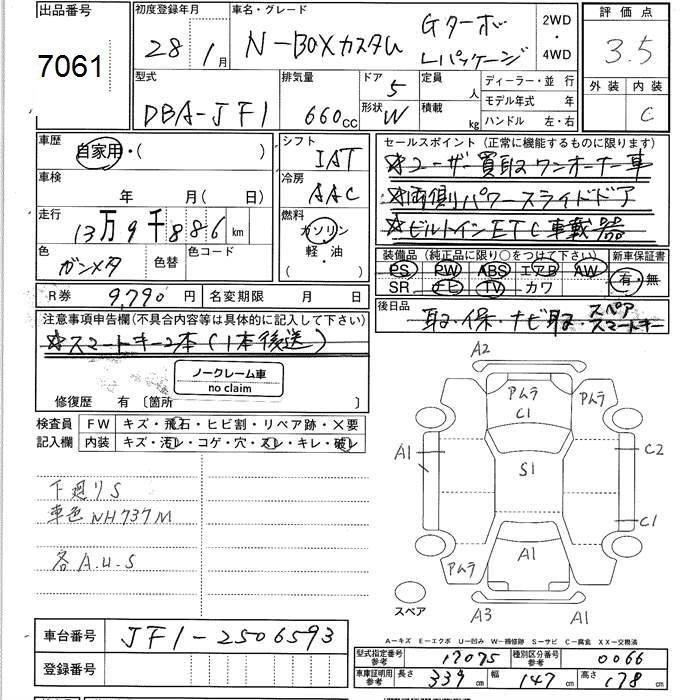 出品番号
7061
初度登録年月
28年1月
車名・グレード
N-BOXカスタム
Gターボ
Lパッケージ
2WD
・
4WD
評価点
3.5
外装 内装
C
型式
DBA-JF1
排気量
660cc
ドア 5
形状 W
定員 人
積載 kg
ディーラー・並行
モデル年式 年
ハンドル 左・右
車歴
自家用・( )
車検
年 月( 日)
走行
13万9千886km
色
ガンメタ
色替
色コード
シフト
IAT
冷房
AAC
燃料
ガソリン
軽・油
( )
セールスポイント(正常に機能するものに限ります)
☆ユーザー買取ワンオーナー車
☆両側パワースライドドア
☆ビルトインETC車載器
装備品(純正品に限り○をつけて下さい)
PS PW ABS エアB AW
SR TV カワ
新車保証書
有・無
R券 9,790円
名変期限 月 日
後日品
取・保・ナビ取・スペア
スマートキー
注意事項申告欄(不具合内容等は具体的に記入して下さい)
☆スマートキー2本(1本後送)
ノークレーム車
no claim
修復歴 有 〔箇所 〕
検査員
記入欄
FW キズ・飛石・ヒビ割・リペア跡・×要
内装 キズ・汚レ・コゲ・穴・スレ・キレ・破レ
下廻りS
車色NH737M
各A.U.S
A2
アムラ
C1
アムラ
A1
C2
S1
C1
A1
アムラ
スペア
A3
A1
A-キズ E-エクボ U-凹み W-補修跡 S-サビ C-腐食 XX-交換済
車台番号
JF1-2506593
登録番号
型式指定番号
参考
17075
種別区分番号
参考
0066
車庫証明用
参考
長さ 339cm
幅 147cm
高さ 178cm